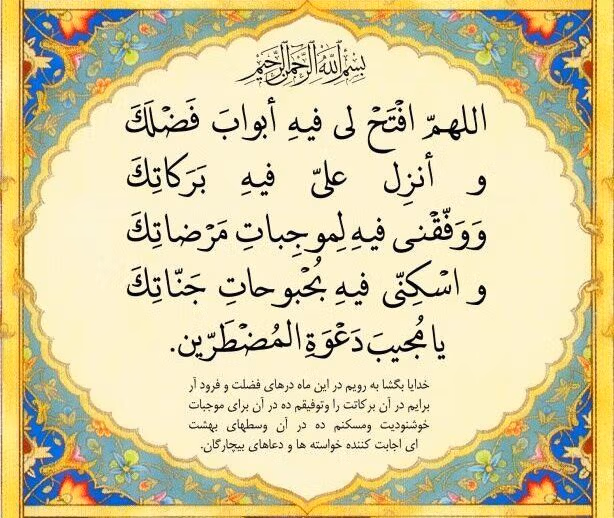 بِسْمِ اللَّهِ الرَّحْمَنِ الرَّحِيمِ
اللهمّ افْتَحْ لی فیهِ أبوابَ فَضْلَكَ
و أنزِل علیّ فیهِ بَرَكاتِكَ
وَوَفّقْنی فیهِ لِموجِباتِ مَرْضاتِكَ
و اسْكِنّی فیهِ بُحْبوحاتِ جَنّاتِكَ
یا مُجیبَ دَعْوَةِ المُضْطَرّین.
خدایا بگشا به رویم در این ماه درهای فضلت و فرود آر
برایم در آن برکاتت را وتوفیقم ده در آن برای موجبات
خوشنودیت ومسکنم ده در آن وسطهای بهشت
ای اجابت کننده خواسته ها و دعاهای بیچارگان.